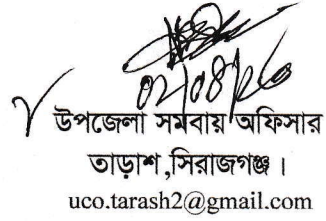 উপজেলা সমবায় অফিসার
তাড়াশ ,সিরাজগঞ্জ ।
uco.tarash2@gmail.com